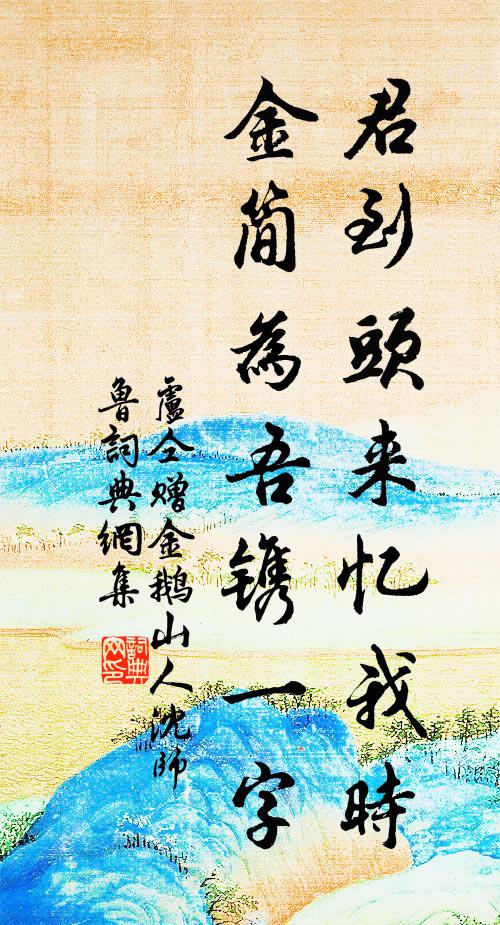 君到頭来忆我時
金简為吾镌一字
盧仝赠金鹅山人沈师
魯詞典網集
詞典
网印